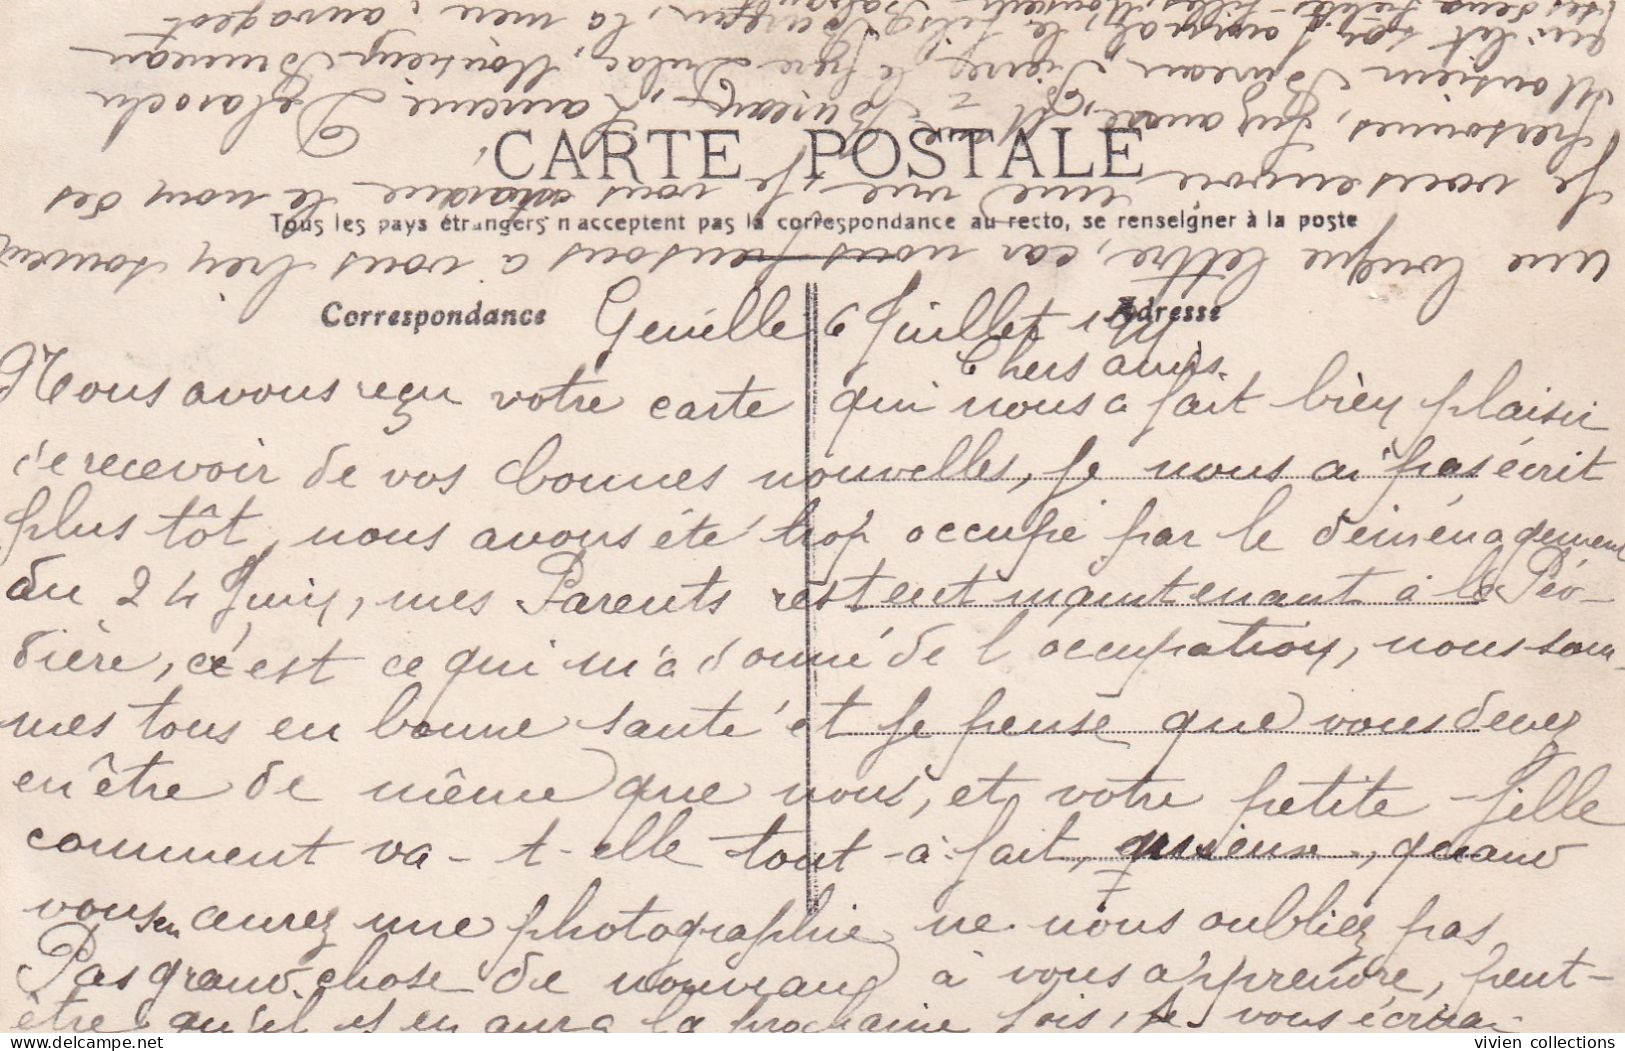 CARTE POSTALE
Tous les pays étrangers n'acceptent pas la correspondance au recto, se renseigner à la poste
Correspondance
Adresse
Genille 6 Juillet 19
Chers amis.
Nous avons reçu votre carte qui nous a fait bien plaisir
de recevoir de vos bonnes nouvelles, je nous ai pas écrit
plus tôt, nous avons été trop occupé par le déménagement
du 24 Juin, mes Parents restent maintenant à la Péo-
dière, c'est ce qui m'a donné de l'occupation, nous som-
mes tous en bonne santé et je pense que vous devez
en être de même que nous, et votre petite-fille
comment va-t-elle tout-à-fait, quand
vous en aurez une photographie ne nous oubliez pas
Pas grand chose de nouveau à vous apprendre, peut-
être qu'il y en aura la prochaine fois, je vous écrirai
une longue lettre, car nous pensons à vous bien souvent
Je vous envoie une vue, je vous marque le nom des
personnes, Suzanne, Mme Bureau, Laurence Delaroche
Monsieur Bureau, Pierre, le frère Dulac, Monsieur Bruneau
qui est son journal, le fils, la mère Sauvageot
ses deux petites-filles,
vivien collections